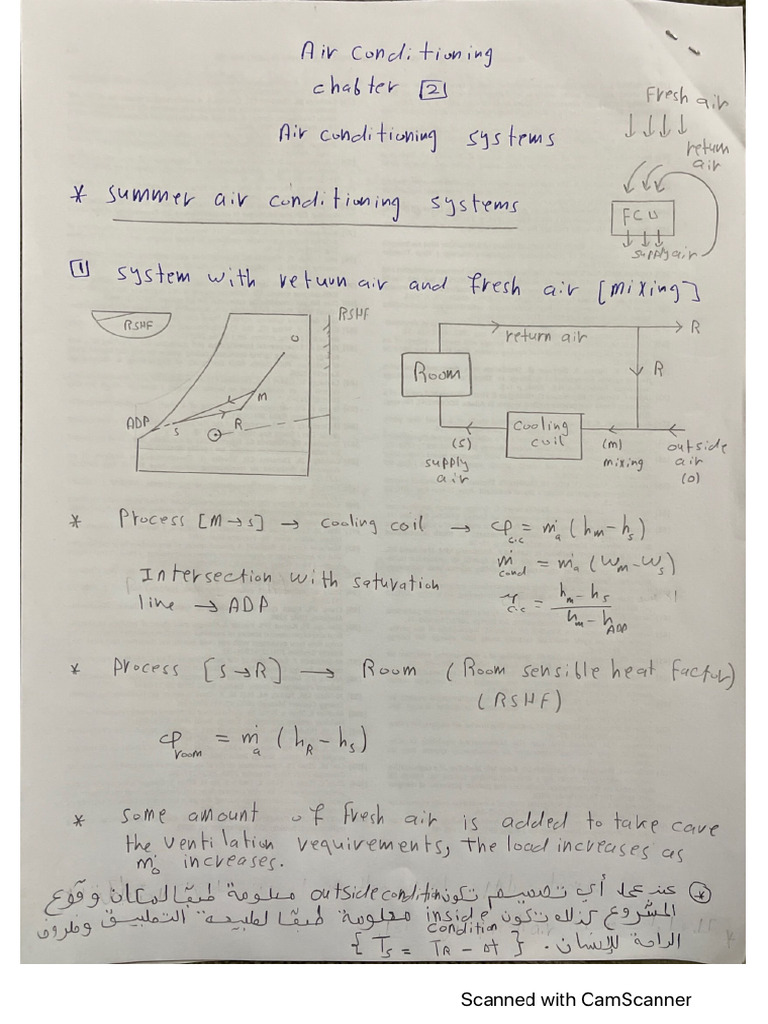 Air conditioning
chabter [2]
Air conditioning systems
Fresh air
return
air
FCU
supply air
* summer air conditioning systems
[1] system with return air and fresh air [mixing]
RSHF
RSHF
O
M
ADP
S
R
return air
R
Room
R
cooling
coil
(s)
supply
air
(m)
mixing
outside
air
(o)
* Process [M→s] → cooling coil → cp c.c = ṁa (hm - hs)
ṁcond = ṁa (Wm - Ws)
Intersection with saturation
line → ADP
η c.c = (hm - hs) / (hm - hADP)
* Process [S→R] → Room (Room sensible heat factor)
(RSHF)
cp room = ṁa (hR - hs)
* some amount of fresh air is added to take care
the ventilation requirements, the load increases as
ṁo increases.
* عند عمل أي تصميم تكون outside condition معلومة طبقا لمكان وقوع
المشروع كذلك تكون inside condition معلومة طبقا لطبيعة التطبيق وظروف
الراحة للإنسان. {Ts = TR - Δt}
Scanned with CamScanner